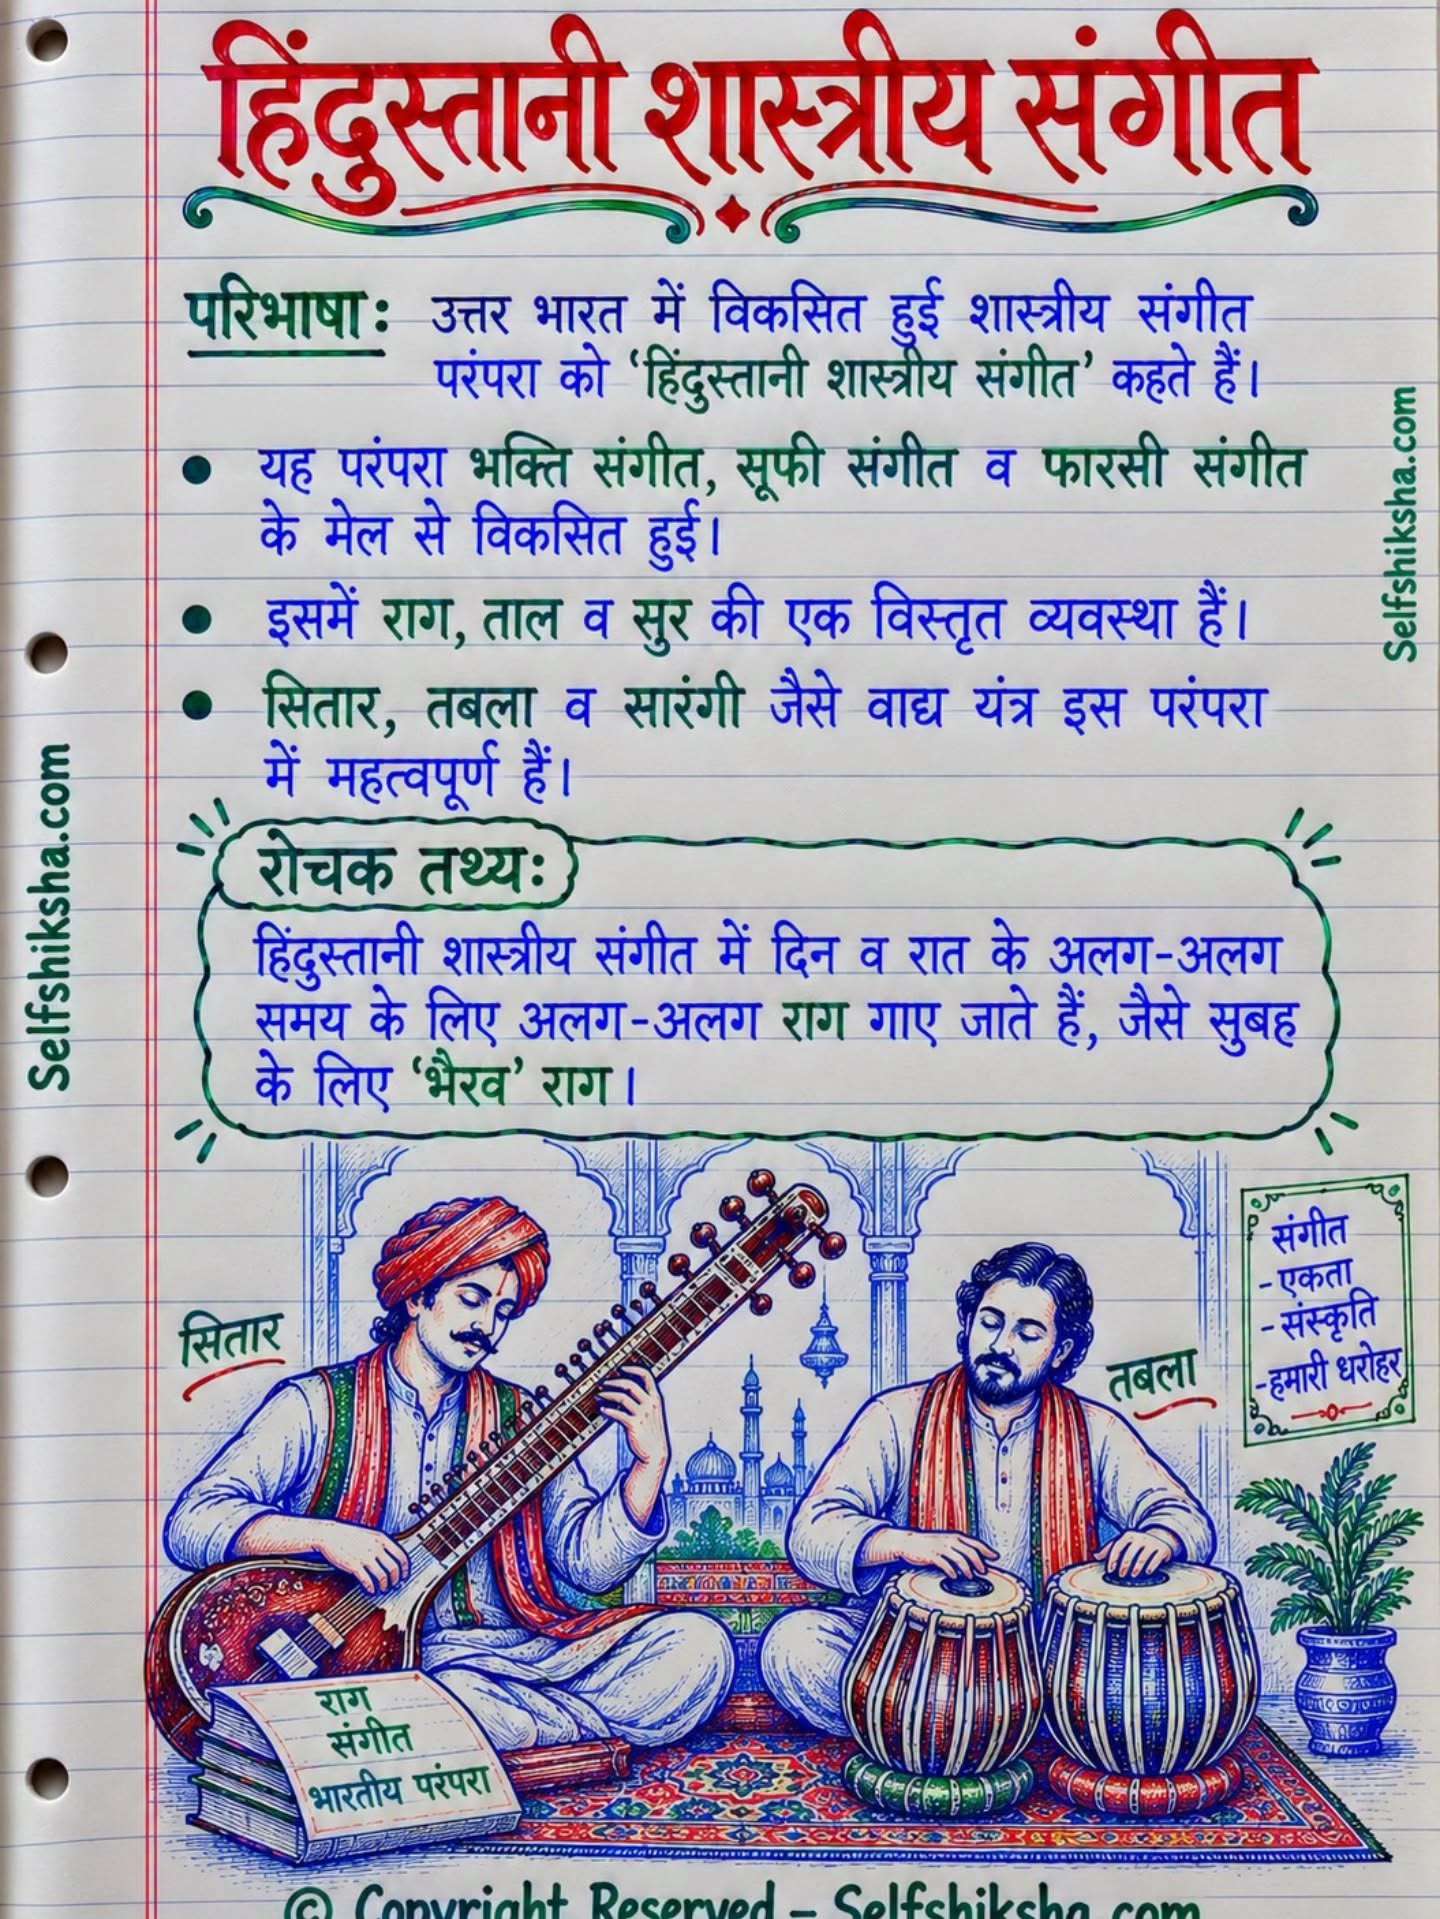 हिंदुस्तानी शास्त्रीय संगीत
परिभाषा: उत्तर भारत में विकसित हुई शास्त्रीय संगीत
परंपरा को ‘हिंदुस्तानी शास्त्रीय संगीत’ कहते हैं।
• यह परंपरा भक्ति संगीत, सूफी संगीत व फारसी संगीत
के मेल से विकसित हुई।
• इसमें राग, ताल व सुर की एक विस्तृत व्यवस्था हैं।
• सितार, तबला व सारंगी जैसे वाद्य यंत्र इस परंपरा
में महत्वपूर्ण हैं।
रोचक तथ्य:
हिंदुस्तानी शास्त्रीय संगीत में दिन व रात के अलग-अलग
समय के लिए अलग-अलग राग गाए जाते हैं, जैसे सुबह
के लिए ‘भैरव’ राग।
सितार
तबला
संगीत
-एकता
-संस्कृति
-हमारी धरोहर
राग
संगीत
भारतीय परंपरा
Selfshiksha.com
Selfshiksha.com
© Copyright Reserved – Selfshiksha.com